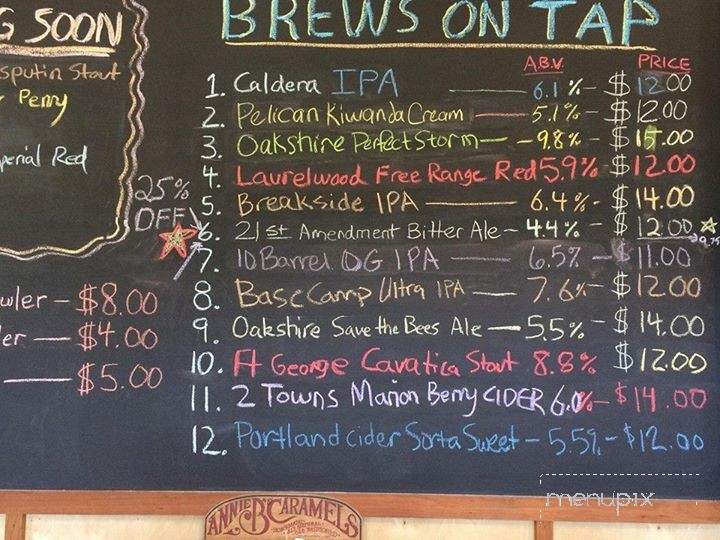 G SOON
sputin Stout
Perry
perial Red
25%
OFF!
wler - $8.00
ler - $4.00
$5.00
BREWS ON TAP
A.B.V. PRICE
1. Caldera IPA 6.1% - $12.00
2. Pelican Kiwanda Cream 5.1% - $12.00
3. Oakshire Perfect Storm - 9.8% - $15.00
4. Laurelwood Free Range Red 5.9% - $12.00
5. Breakside IPA 6.4% - $14.00
6. 21st Amendment Bitter Ale - 4.4% - $12.00
7. 10 Barrel OG IPA 6.5% - $11.00
8. Base Camp Ultra IPA 7.6% - $12.00
9. Oakshire Save the Bees Ale - 5.5% - $14.00
10. Ft George Cavatica Stout 8.8% $12.00
11. 2 Towns Marion Berry CIDER 6.0% - $14.00
12. Portland cider Sorta Sweet - 5.5% - $12.00
menupix
ANNIE B'S CARAMELS